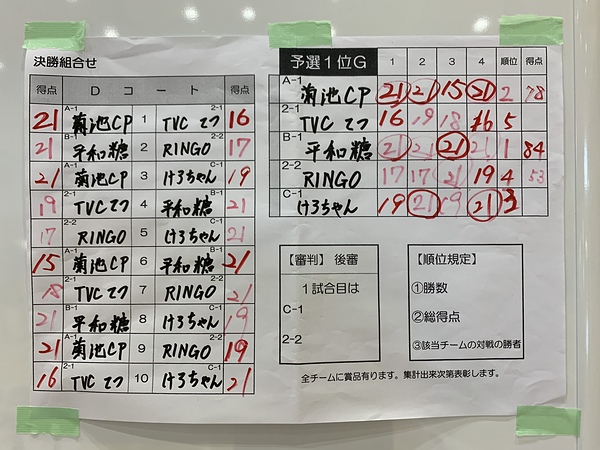 決勝組合せ
得点 Dコート 得点
21 A-1 菊池CP 1 TVC てつ 2-1 16
21 B-1 平和糖 2 RINGO 2-2 17
21 A-1 菊池CP 3 けろちゃん C-1 19
19 2-1 TVC てつ 4 平和糖 B-1 21
17 2-2 RINGO 5 けろちゃん C-1 21
15 A-1 菊池CP 6 平和糖 21
18 2-1 TVC てつ 7 RINGO 2-2 21
21 B-1 平和糖 8 けろちゃん C-1 19
21 A-1 菊池CP 9 RINGO 2-2 19
16 2-1 TVC てつ 10 けろちゃん C-1 21
予選1位G 1 2 3 4 順位 得点
A-1 菊池CP 21 21 15 21 2 78
2-1 TVC てつ 16 19 18 16 5
B-1 平和糖 21 21 21 21 1 84
2-2 RINGO 17 17 21 19 4 53
C-1 けろちゃん 19 21 19 21 3
【審判】 後審
1試合目は
C-1
2-2
【順位規定】
①勝数
②総得点
③該当チームの対戦の勝者
全チームに賞品有ります。集計出来次第表彰します。